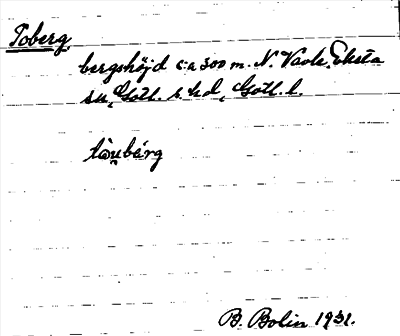 Toberg
bergshöjd c:a 300 m. N. Vavle, Eksta
sn, Gotl. s. hd, Gotl. l.
tòu̯bárg
B. Bolin 1931.